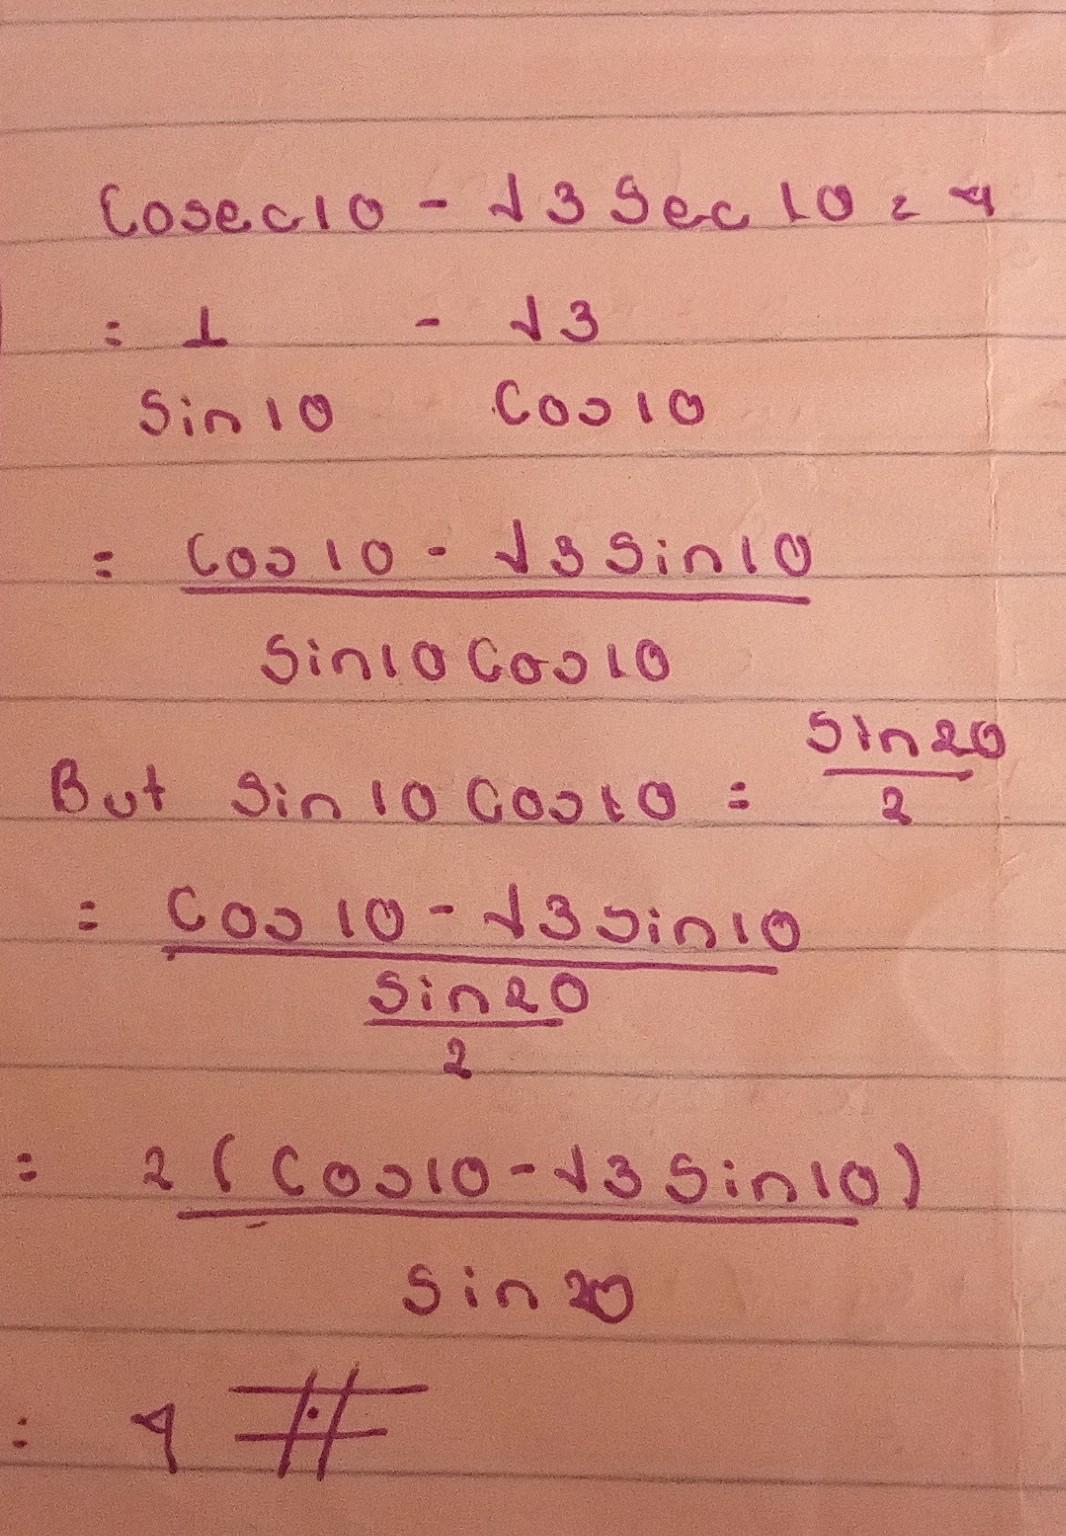 Cosec10 - √3 Sec 10 = 4
= 1 - √3
Sin 10 Cos 10
= Cos 10 - √3 Sin10
Sin10 Cos10
But Sin 10 Cos10 = Sin20
2
= Cos 10 - √3 Sin10
Sin20
2
= 2 (Cos10 - √3 Sin10)
Sin 20
= 4 #